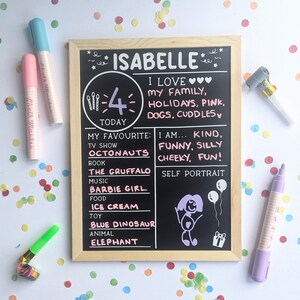 ISABELLE
4
TODAY
I LOVE
MY FAMILY,
HOLIDAYS, PINK,
DOGS, CUDDLES
MY FAVOURITE:
TV SHOW
OCTONAUTS
BOOK
THE GRUFFALO
MUSIC
BARBIE GIRL
FOOD
ICE CREAM
TOY
BLUE DINOSAUR
ANIMAL
ELEPHANT
I AM... KIND,
FUNNY, SILLY
CHEEKY, FUN!
SELF PORTRAIT